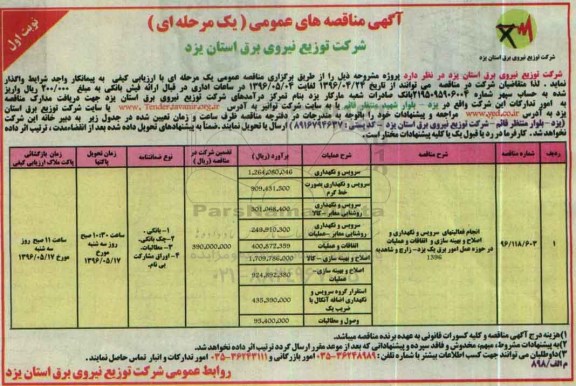 نوبت اول
آگهی مناقصه های عمومی ( یک مرحله ای )
شرکت توزیع نیروی برق استان یزد
شرکت توزیع نیروی برق استان یزد
شرکت توزیع نیروی برق استان یزد در نظر دارد پروژه مشروحه ذیل را از طریق برگزاری مناقصه عمومی یک مرحله ای با ارزیابی کیفی به پیمانکار واجد شرایط واگذار
نماید . لذا متقاضیان شرکت در مناقصه می توانند از تاریخ ۱۳۹۶/۰۴/۲۴ لغایت ۱۳۹۶/۰۵/۰۴ در ساعات اداری در قبال ارائه فیش بانکی به مبلغ ۲۰۰/۰۰۰ ریال واریز
شده به حساب سپهر شماره بانک صادرات شعبه مارکار یزد بنام تمرکز درآمدهای شرکت توزیع نیروی برق استان یزد جهت دریافت مدارک مناقصه
به امور تدارکات این شرکت واقع در یزد - بلوار شهید منتظر قائم یا به سایت شرکت توانیر به آدرس www.Tender.tavanir.org.ir یا سایت شرکت توزیع استان
یزد به آدرس www.yed.co.ir مراجعه و پیشنهادات خود را باتوجه به مندرجات در دفترچه مناقصه ظرف ساعت و زمان تعیین شده در جدول زیر به دبیر خانه این شرکت
(یزد- بلوار منتظر قائم - شرکت توزیع نیروی برق استان یزد - کدپستی : ۸۹۱۶۷۹۴۶۳۷) ارسال یا تحویل نمایند. ضمناً به پیشنهادهای تحویل داده شده بعد از انقضاء مدت ، ترتیب اثر داده
نخواهد شد. کارفرما در رد یا قبول یک یا کلیه پیشنهادات مختار است.
ردیف
شماره مناقصه
شرح مناقصه
شرح عملیات
برآورد (ریال)
تضمین شرکت در مناقصه (ریال)
نوع ضمانتنامه
زمان تحویل پاکتها
زمان بازگشائی پاکت ملاک ارزیابی کیفی
۱
۹۶/۱۱۸/۶۰۳
انجام فعالیتهای سرویس و نگهداری و
اصلاح و بهینه سازی و اتفاقات و عملیات
در حوزه عمل امور برق یک یزد- زارچ و شاهدیه
1396
سرویس و نگهداری
1,264,060,046
سرویس و نگهداری بصورت خط گرم
909,451,500
سرویس و نگهداری روشنایی معابر - کالا
301,068,400
سرویس و نگهداری روشنایی معابر - عملیات
249,810,300
اتفاقات و عملیات
400,872,359
اصلاح و بهینه سازی - کالا
1,709,786,000
اصلاح و بهینه سازی - عملیات
924,892,380
استقرار گروه سرویس و نگهداری اضافه آنکال با ضریب یک
435,390,000
وصول و مطالبات
95,400,000
390,000,000
۱- بانکی .
۲-چک بانکی.
۳- مطالبات
۴- اوراق مشارکت
بی نام.
ساعت ۱۰:۳۰ صبح
روز سه شنبه
مورخ
۱۳۹۶/۰۵/۱۷
ساعت ۱۱ صبح روز
سه شنبه
مورخ
۱۳۹۶/۰۵/۱۷
۱)هزینه درج آگهی مناقصه و کلیه کسورات قانونی به عهده برنده مناقصه میباشد.
۲)به پیشنهادات مشروط، مبهم، مخدوش و فاقد سپرده و پیشنهاداتی که بعد از موعد مقرر ارسال گردد ترتیب اثر داده نخواهد شد.
۳)داوطلبان می توانند جهت کسب اطلاعات بیشتر با شماره تلفن : ۳۶۲۴۸۹۸۹-۰۳۵ امور بازرگانی و ۳۶۲۴۳۱۱۱-۰۳۵ امور تدارکات و انبار تماس حاصل نمایند .
م الف/۸۹۸
روابط عمومی شرکت توزیع نیروی برق استان یزد